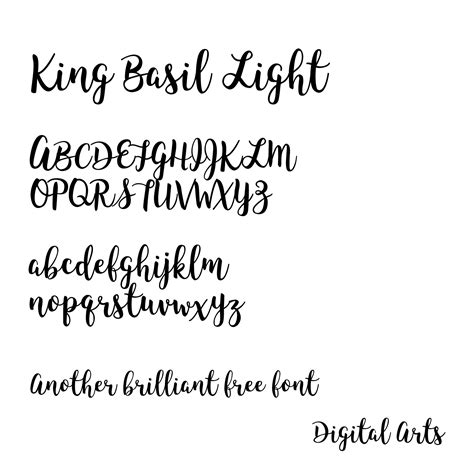 King Basil Light
ABCDEFGHIJKLM
OPQRSTUVWXYZ
abcdefghijklm
nopqrstuvwxyz
Another brilliant free font
Digital Arts